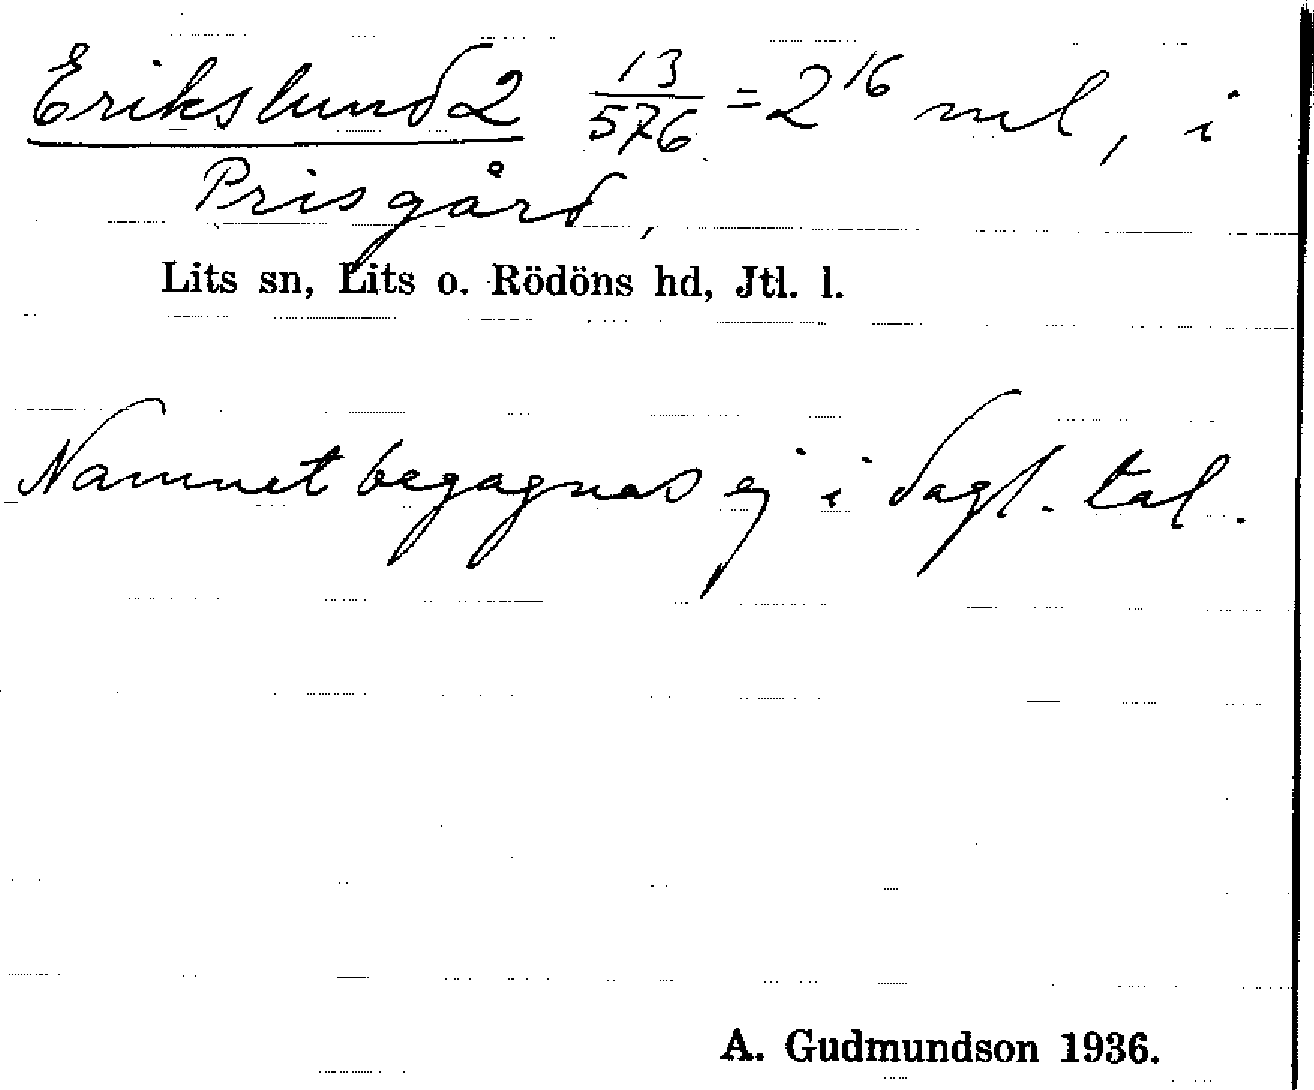 Erikslund 2 13/576 = 2¹⁶ ml, i
Prisgård,
Lits sn, Lits o. Rödöns hd, Jtl. l.
Namnet begagnas ej i dagl. tal.
A. Gudmundson 1936.